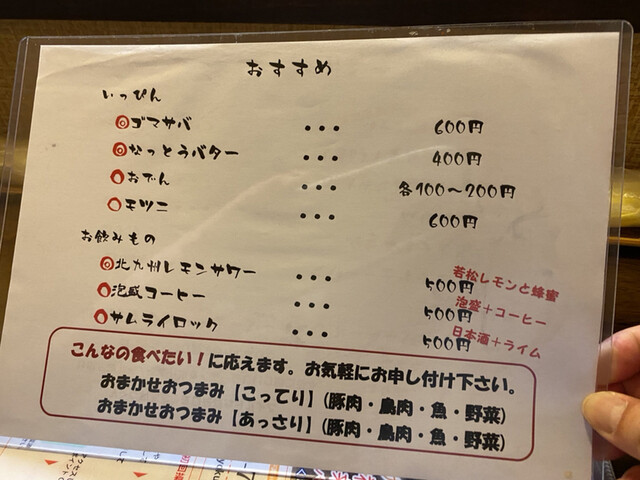 おすすめ
いっぴん
◎ゴマサバ ・・・ 600円
◎なっとうバター ・・・ 400円
○おでん ・・・ 各100〜200円
○モツニ ・・・ 600円
お飲みもの
◎北九州レモンサワー ・・・ 500円 若松レモンと蜂蜜
○泡盛コーヒー ・・・ 500円 泡盛+コーヒー
○サムライロック ・・・ 500円 日本酒+ライム
こんなの食べたい!に応えます。お気軽にお申し付け下さい。
おまかせおつまみ【こってり】(豚肉・鳥肉・魚・野菜)
おまかせおつまみ【あっさり】(豚肉・鳥肉・魚・野菜)